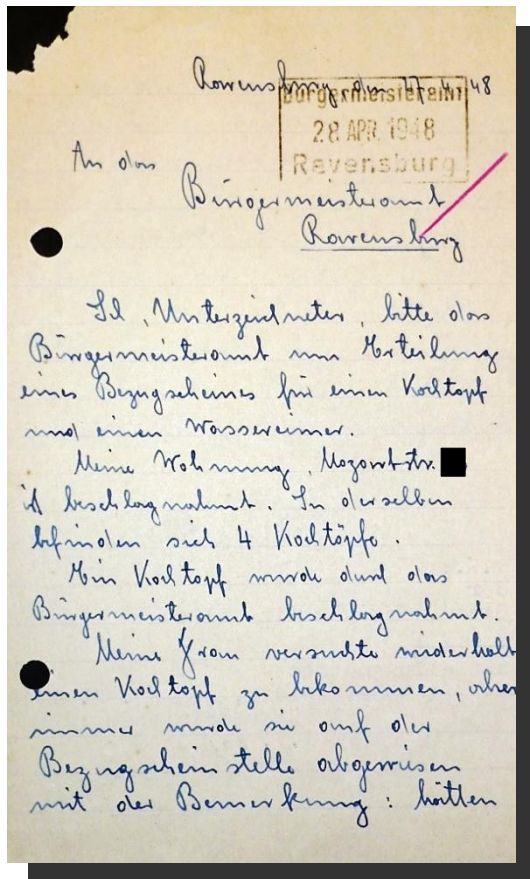 Ravensburg den 27.4.48
Bürgermeisteramt
28. APR. 1948
Ravensburg
An das
Bürgermeisteramt
Ravensburg
Ich, Unterzeichneter, bitte das
Bürgermeisteramt um Erteilung
eines Bezugscheines für einen Kochtopf
und einen Wassereimer.
Meine Wohnung, Mozartstr.
ist beschlagnahmt. In derselben
befinden sich 4 Kochtöpfe.
Ein Kochtopf wurde durch das
Bürgermeisteramt beschlagnahmt.
Meine Frau versuchte widerholt
einen Kochtopf zu bekommen, aber
immer wurde sie auf der
Bezugscheinstelle abgewiesen
mit der Bemerkung: hätten